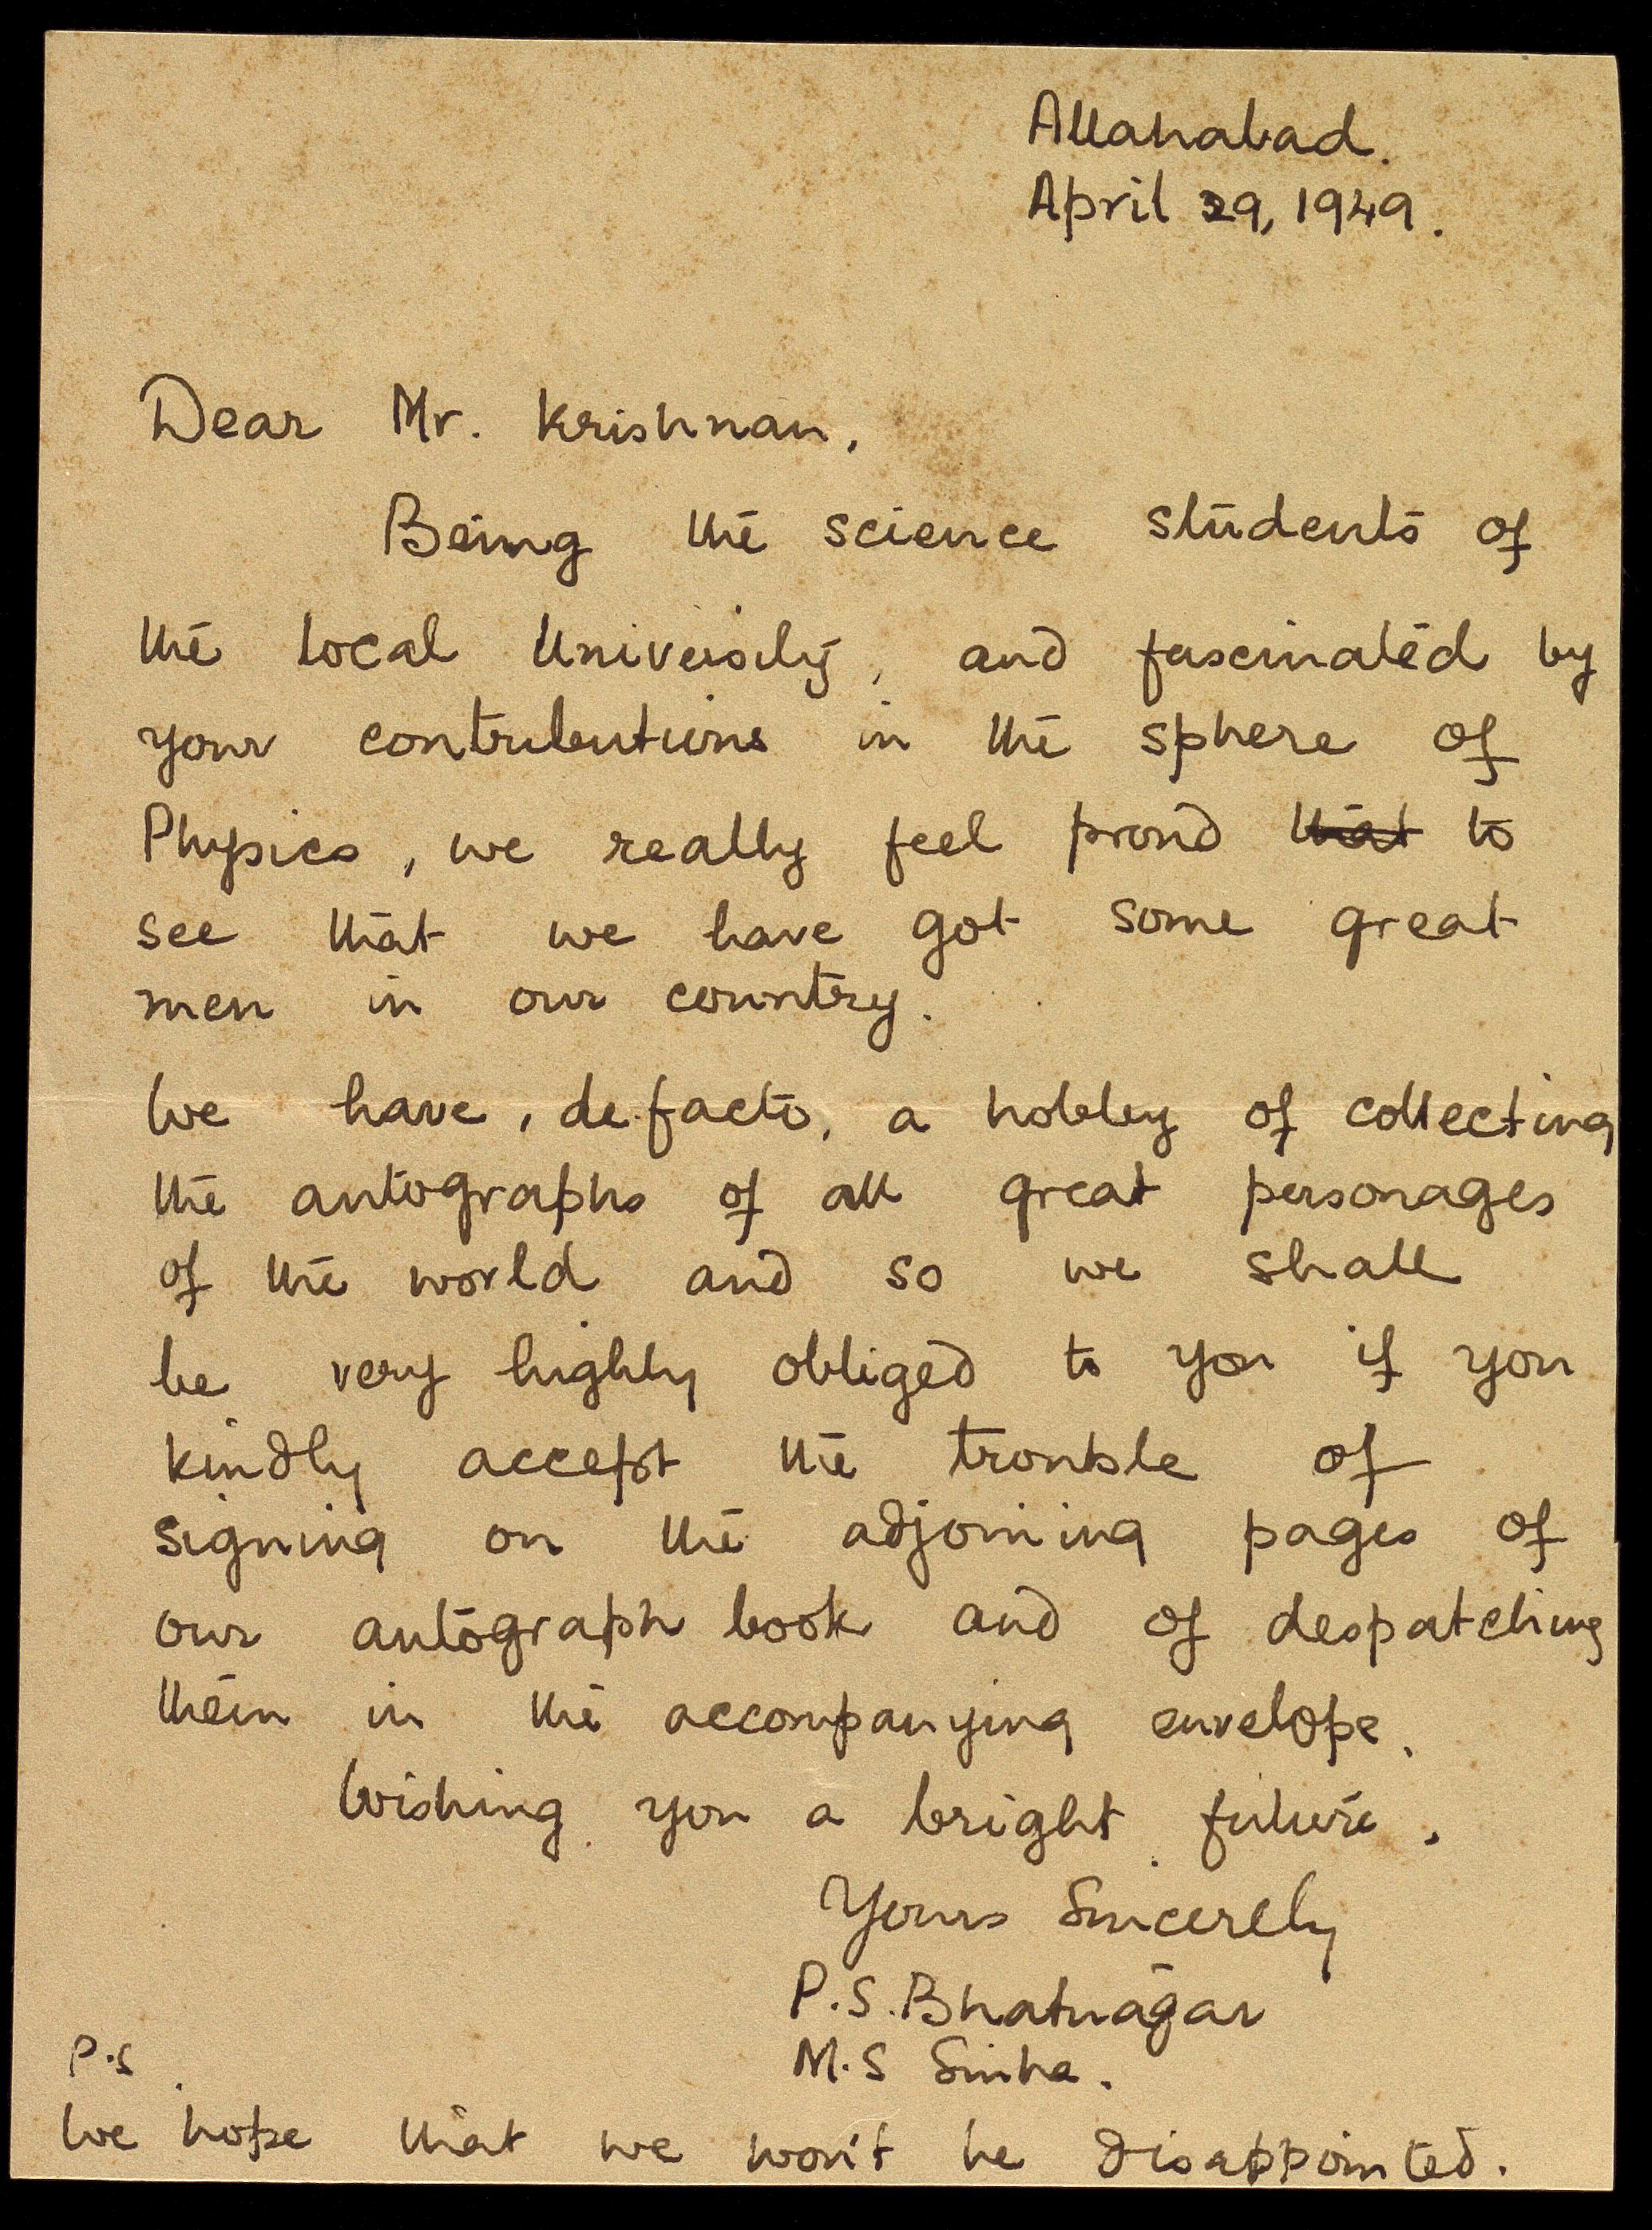 Allahabad.
April 29, 1949.
Dear Mr. Krishnan,
Being the science students of
the local University, and fascinated by
your contributions in the sphere of
Physics, we really feel proud that to
see that we have got some great
men in our country.
We have, de facto, a hobby of collecting
the autographs of all great personages
of the world and so we shall
be very highly obliged to you if you
kindly accept the trouble of
signing on the adjoining pages of
our autograph book and of despatching
them in the accompanying envelope.
Wishing you a bright future.
Yours Sincerely
P.S. Bhatnagar
M.S Sinha.
P.S
We hope that we won't be disappointed.